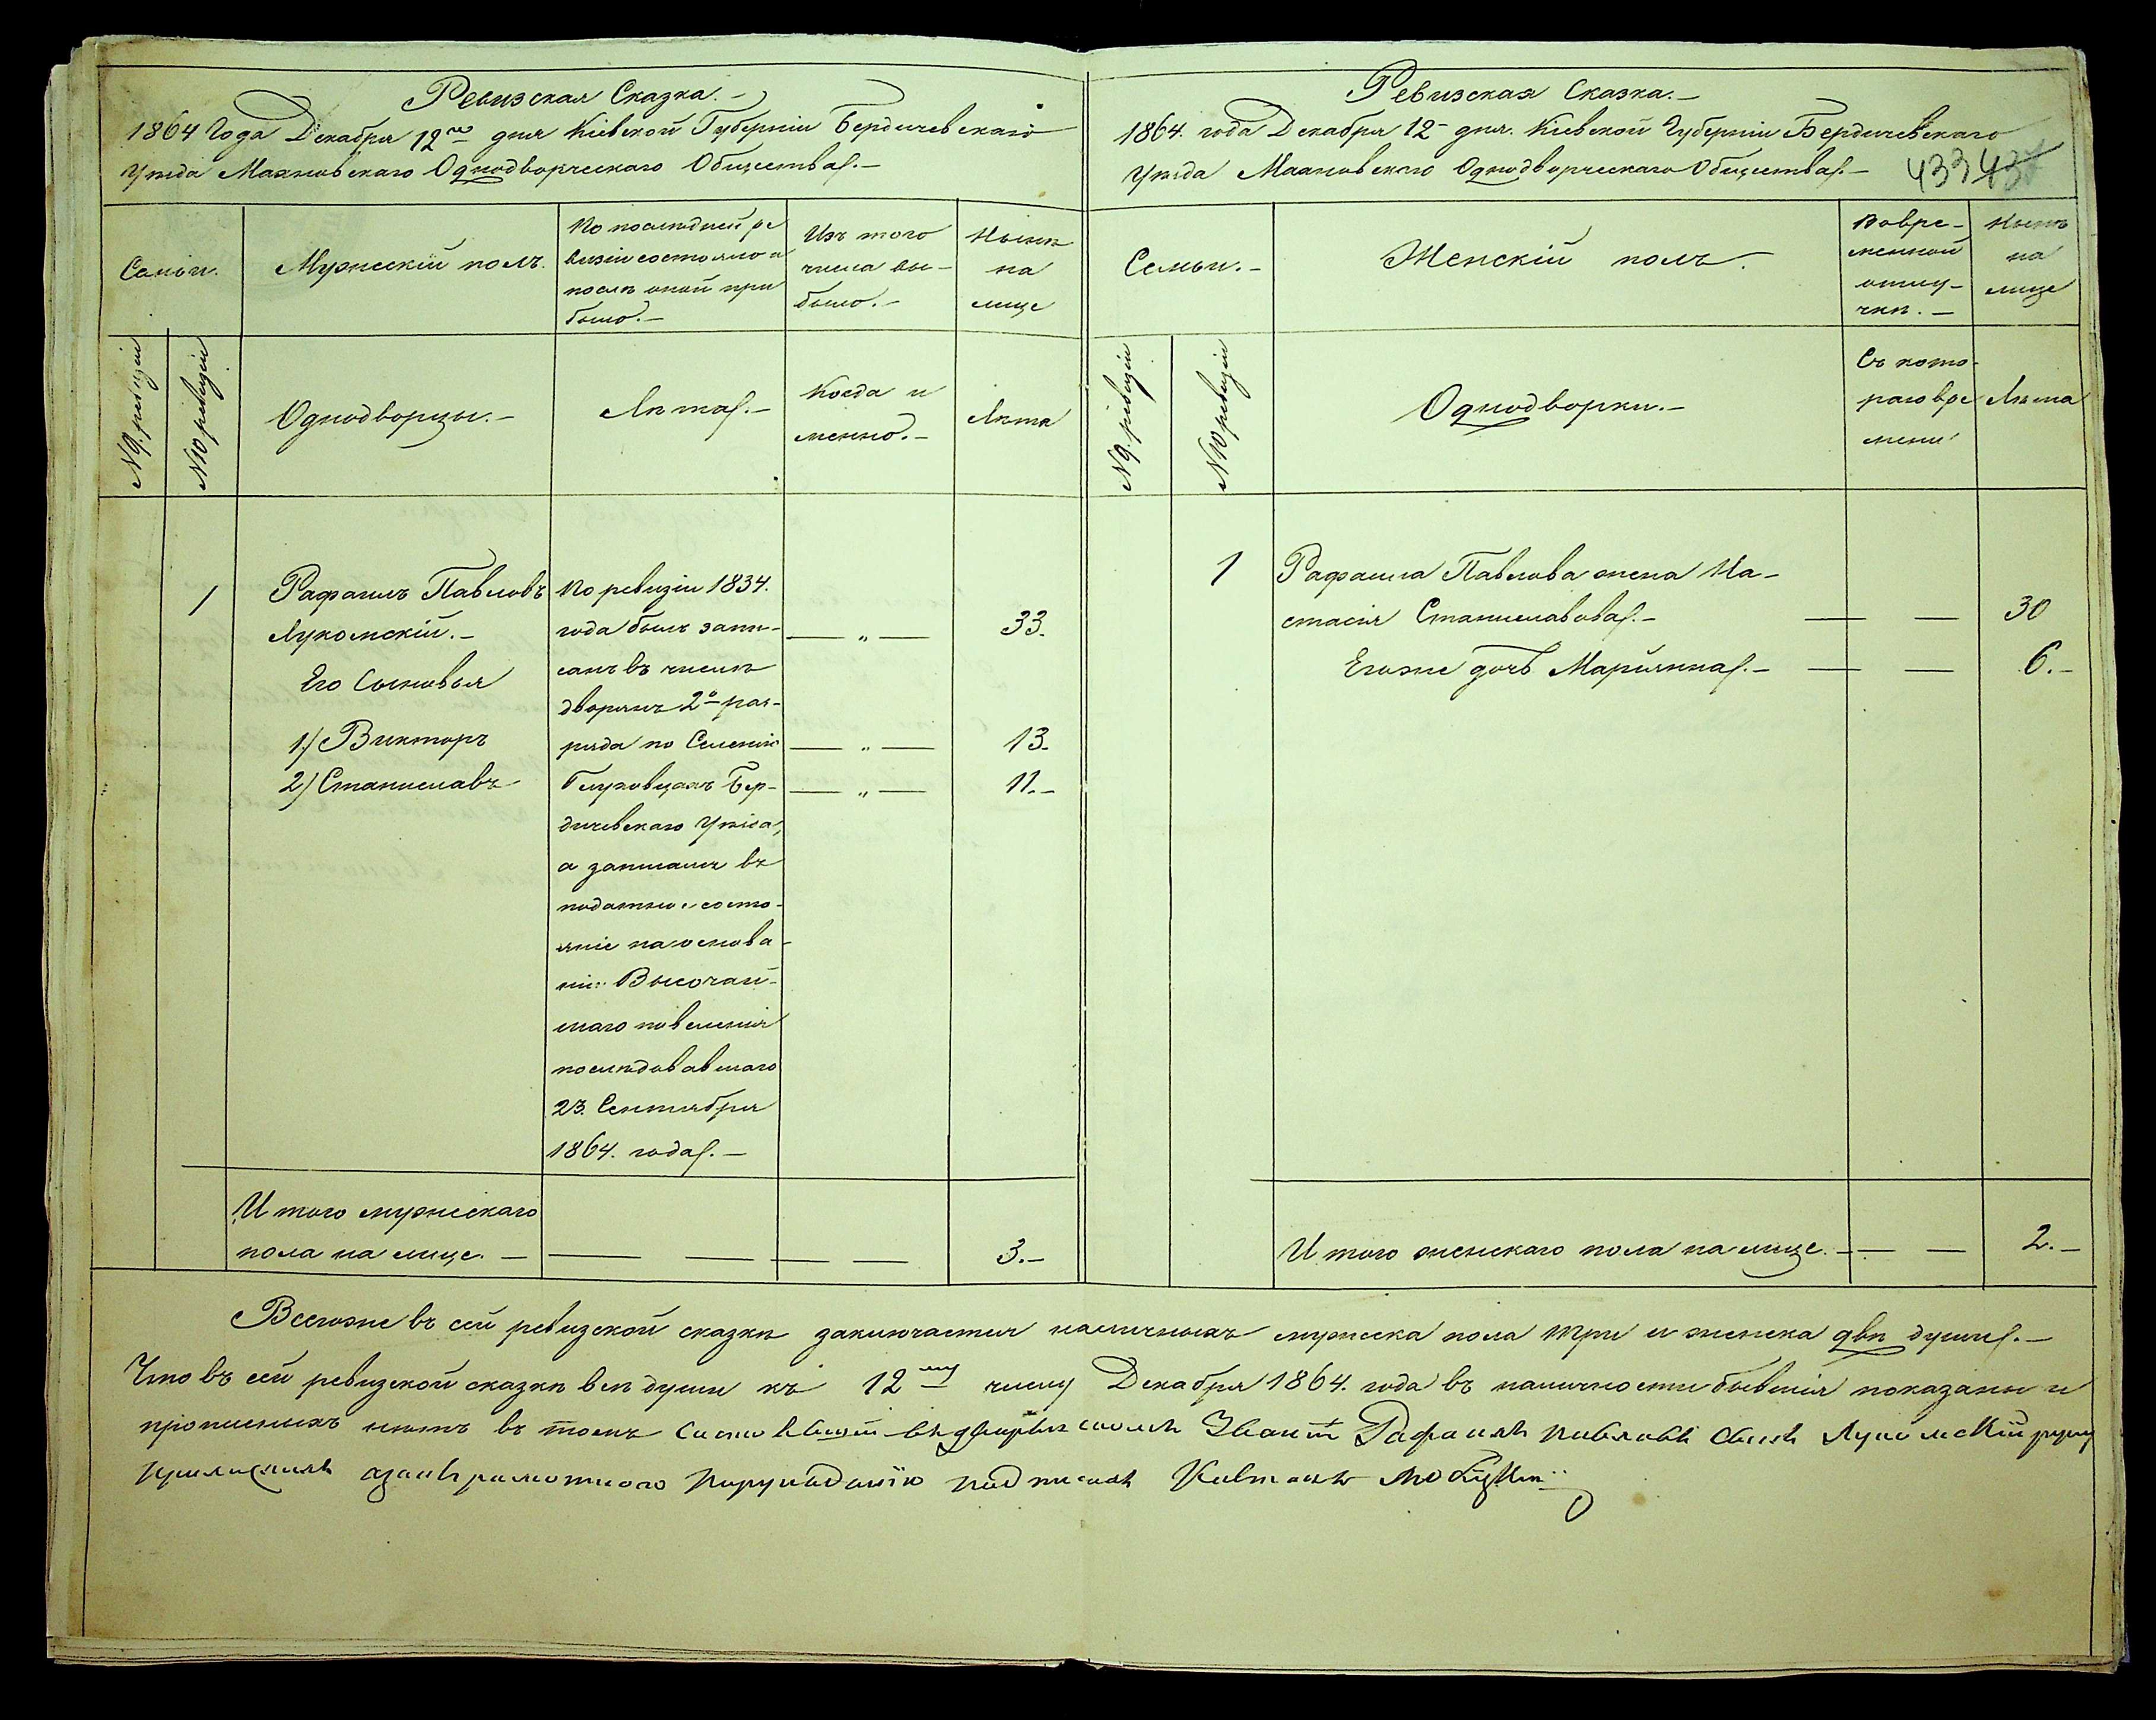 Ревизская Сказка.-
1864 Года Декабря 12го дня Кіевской Губерніи Бердичевскаго
Уѣзда Махновскаго Однодворческаго Общества.-
Семьи.
Мужескій полъ.
По послѣдней ре
визіи состояло и
послѣ оной при
было.-
Изъ того
числа вы-
было.-
Нынѣ
на
лице
№ 9. ревизіи
№ 10 ревизіи
Однодворцы.-
Лѣта.-
Когда и
менно.-
Лѣта
1
Рафаилъ Павловъ
Лукомскій.-
Его Сыновья
1) Викторъ
2) Станиславъ
По ревизіи 1834.
года былъ запи-
санъ въ числѣ
дворянъ 2го раз-
ряда по Селенію
Глуховцахъ Бер-
дичевскаго Уѣзда,
а записанъ въ
податное состо-
яніе на основа-
ніи Высочай-
шаго повеленія
послѣдовавшаго
23. Сентября
1864. года.-
— „ — 33.
— „ — 13.
— „ — 11.-
Итого мужескаго
пола на лице. — — — — — 3.-
Ревизская Сказка.-
1864. года Декабря 12- дня. Кіевской Губерніи Бердичевскаго
Уѣзда Махновскаго Однодворческаго Общества.-
433 437
Семьи.-
Женскій полъ.
Вовре-
менной
отлу-
чкѣ.-
Нынѣ
на
лице
№ 9. ревизіи
№ 10 ревизіи
Однодворки.-
Съ кото-
раго вре
мени
Лѣта
1
Рафаила Павлова жена На-
стасія Станиславова.- — — 30
Егоже дочь Маріянна.- — — 6.-
Итого женскаго пола на лице. — — — 2.-
Всегоже въ сей ревизской сказкѣ заключается наличныхъ мужеска пола три и женска двѣ души.-
Что въ сей ревизской сказкѣ всѣ души къ 12му числу Декабря 1864. года въ наличности бывшія показаны и
прописныхъ нѣтъ въ томъ Рафаилъ Павловъ Сынъ Лукомскій руку
приложилъ азанеграмотного Порукоданію подписалъ